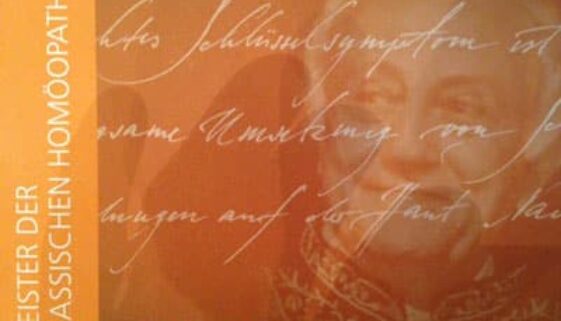 EISTER DER
ASSISCHEN HOMÖOPATH
htes Schlüsselsymptom ist
same Umsetzung von Sc
lungen auf der Haut Nau